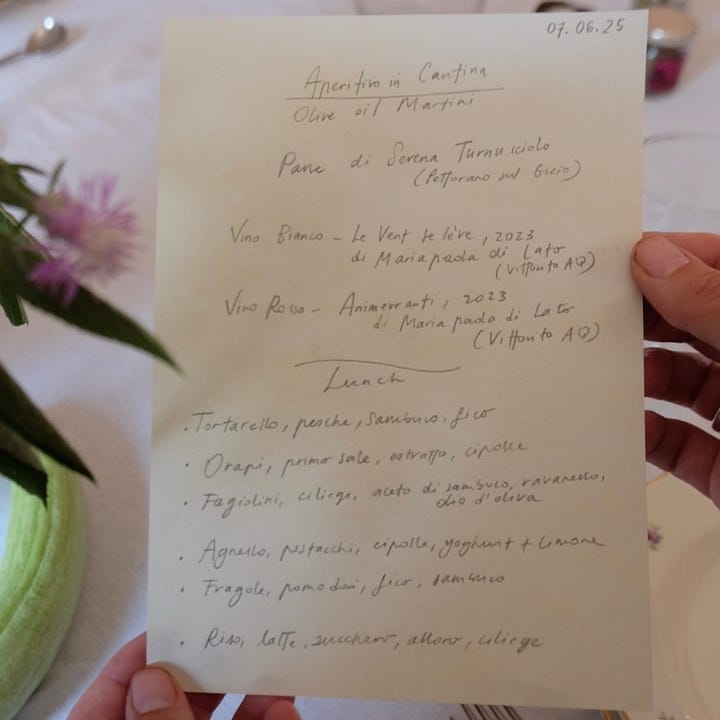 07.06.25
Aperitivo in Cantina
Olive oil Martini
Pane di Serena Turnusciolo
(Pettorano sul Gizio)
Vino Bianco - Le Vent se lève, 2023
di Mariapaola di Lato
(Vittorito AQ)
Vino Rosso - Animerranti, 2023
di Maria paola di Lato
(Vittorito AQ)
Lunch
· Tortarello, pesche, sambuco, fico
· Orapi, primo sale, estratto, cipolle
· Fagiolini, ciliege, aceto di sambuco, ravanello,
olio d'oliva
· Agnello, pistacchi, cipolle, yoghurt + Limone
· Fragole, pomodori, fico, sambuco
· Riso, latte, zucchero, alloro, ciliege